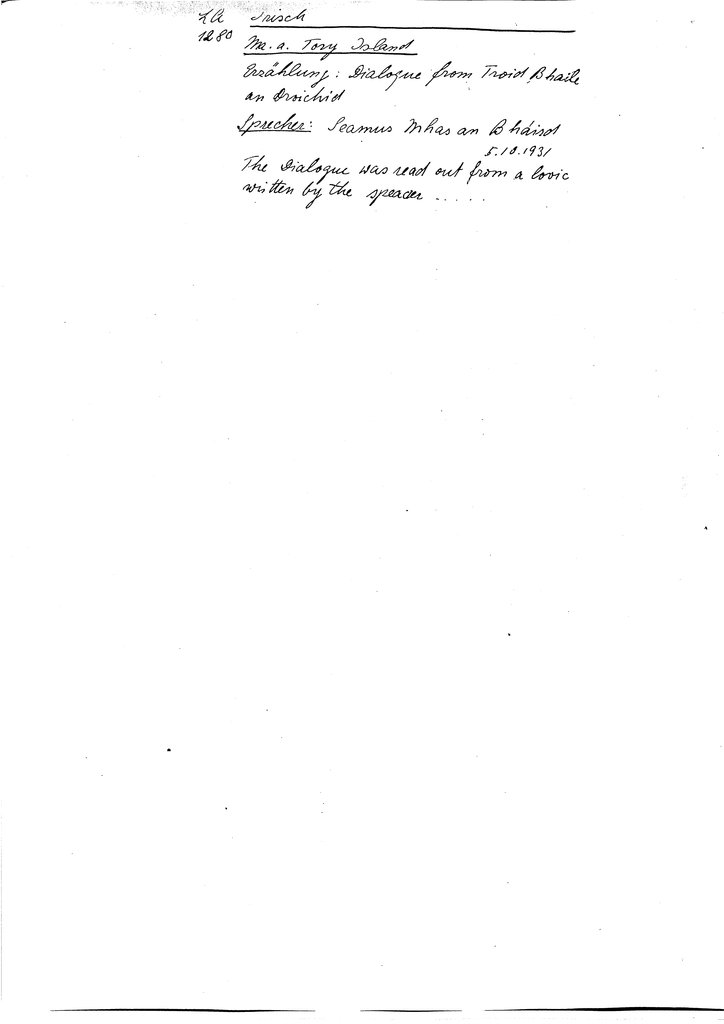 LA Irisch
1280 Ma. a. Tory Island
Erzählung: Dialogue from Troid Bhaile
an Droichid
Sprecher: Seamus Mhas an Bháisd
5.10.1931
The Dialogue was read out from a lovic
written by the speacer .....